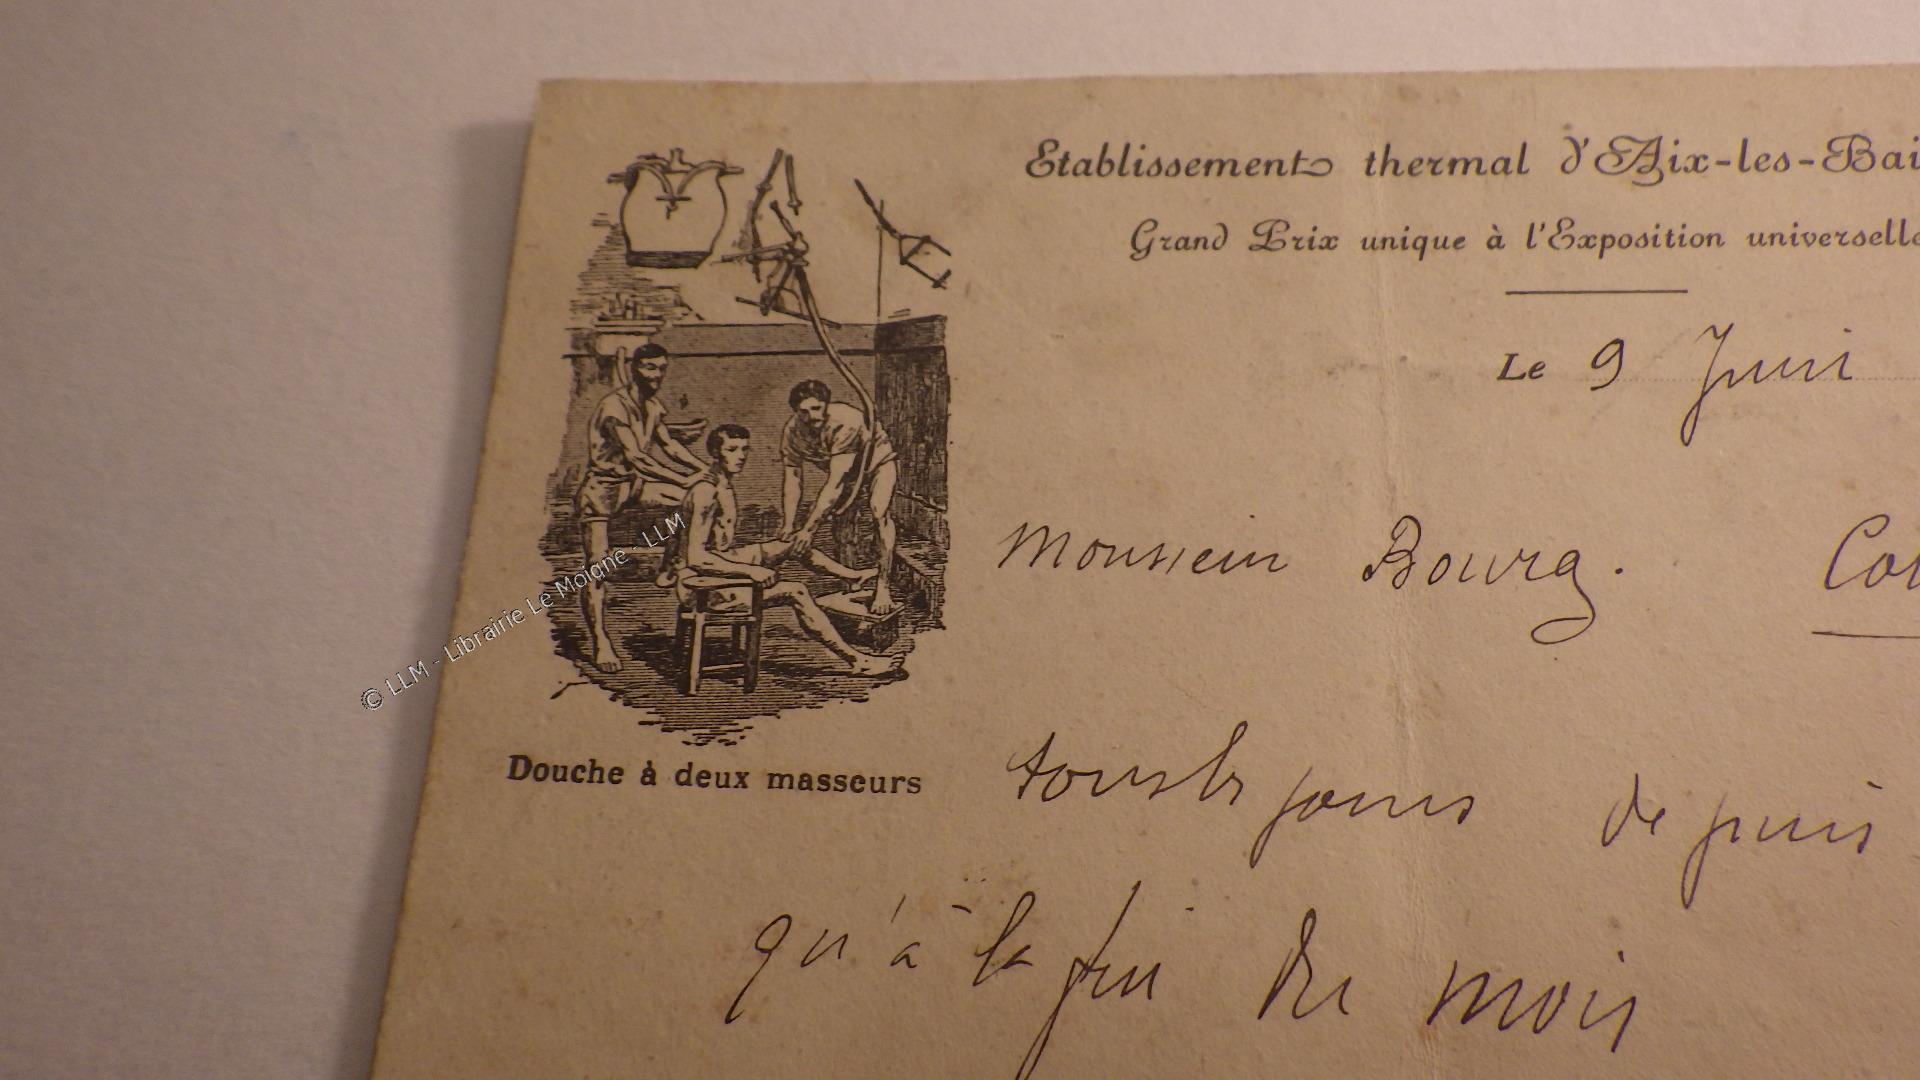 Etablissement thermal d'Aix-les-Bai
Grand Prix unique à l'Exposition universelle
Le 9 Juin
Monsieur Bourg. Col
tous les jours depuis
qu'à la fin du mois
Douche à deux masseurs
© LLM - Librairie Le Moigne - LLM